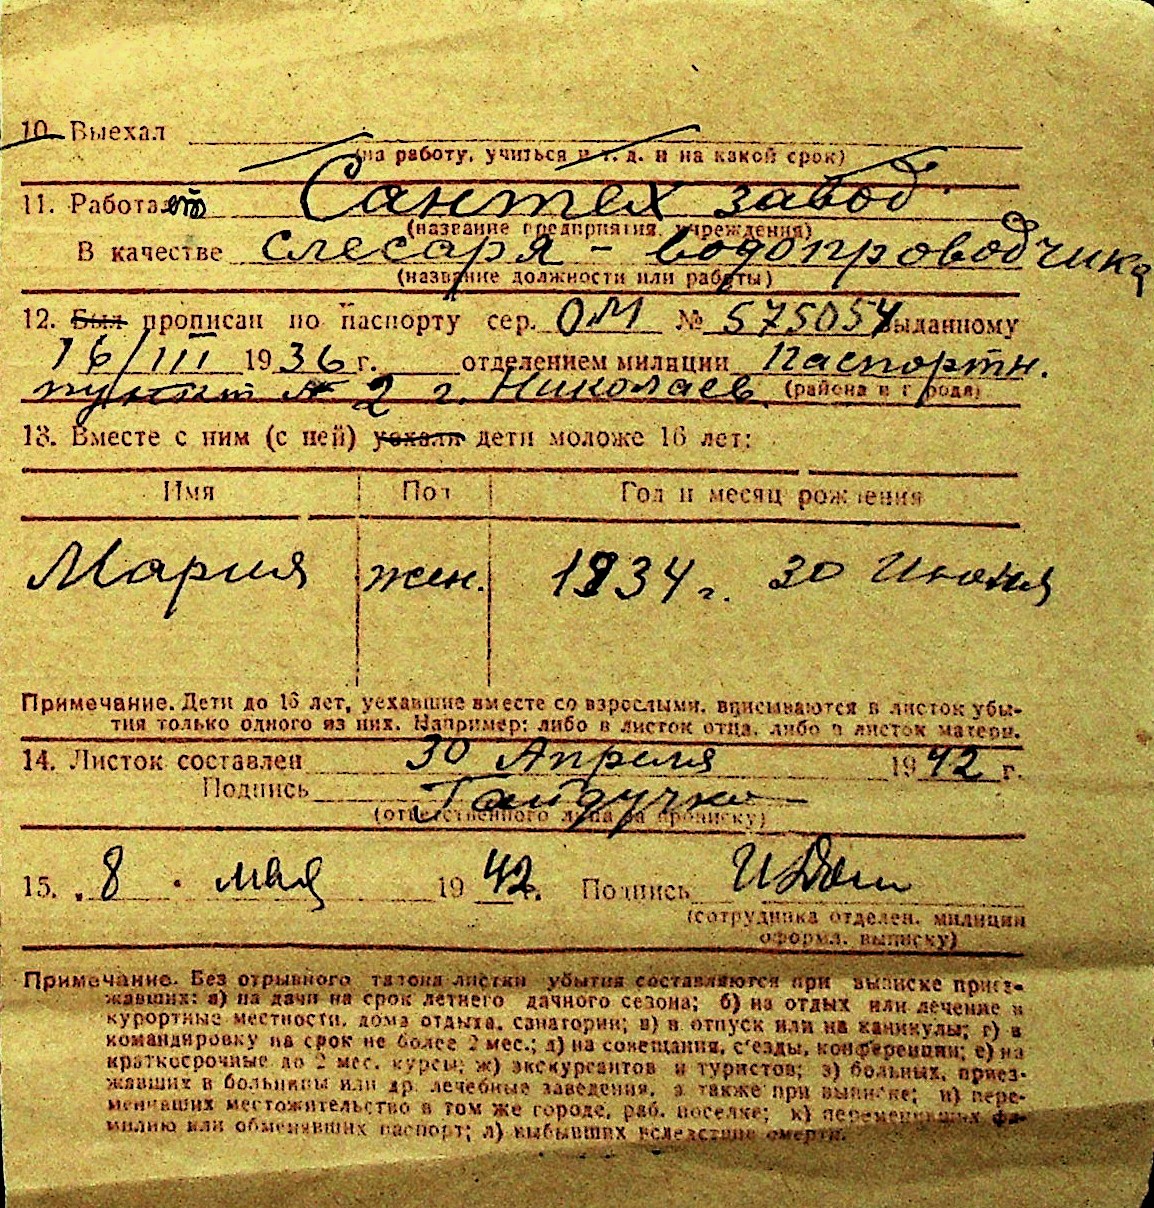 10. Выехал
(на работу, учиться и т. д. и на какой срок)
11. Работает Сантех завод.
(название предприятия, учреждения)
В качестве слесаря - водопроводчика
(название должности или работы)
12. Был прописан по паспорту сер. ОМ № 575054 выданному
16/III 1936 г. отделением милиции Паспортн.
пункт № 2 г. Николаев. (района и города)
13. Вместе с ним (с ней) уехали дети моложе 16 лет:
Имя Пол Год и месяц рождения
Мария жен. 1934 г. 30 Июня
Примечание. Дети до 16 лет, уехавшие вместе со взрослыми, вписываются в листок убы-
тия только одного из них. Например: либо в листок отца, либо в листок матери.
14. Листок составлен 30 Апреля 1942 г.
Подпись
(ответственного лица за прописку)
15. 8 мая 1942 г. Подпись
(сотрудника отделен. милиции
оформл. выписку)
Примечание. Без отрывного талона листки убытия составляются при выписке приез-
жавших: а) на дачи на срок летнего дачного сезона; б) на отдых или лечение в
курортные местности, дома отдыха, санатории; в) в отпуск или на каникулы; г) в
командировку на срок не более 2 мес.; д) на совещания, с'езды, конференции; е) на
краткосрочные до 2 мес. курсы; ж) экскурсантов и туристов; з) больных, приез-
жавших в больницы или др. лечебные заведения, а также при выписке; и) пере-
менивших местожительство в том же городе, раб. поселке; к) переменивших фа-
милию или обменявших паспорт; л) выбывших вследствие смерти.